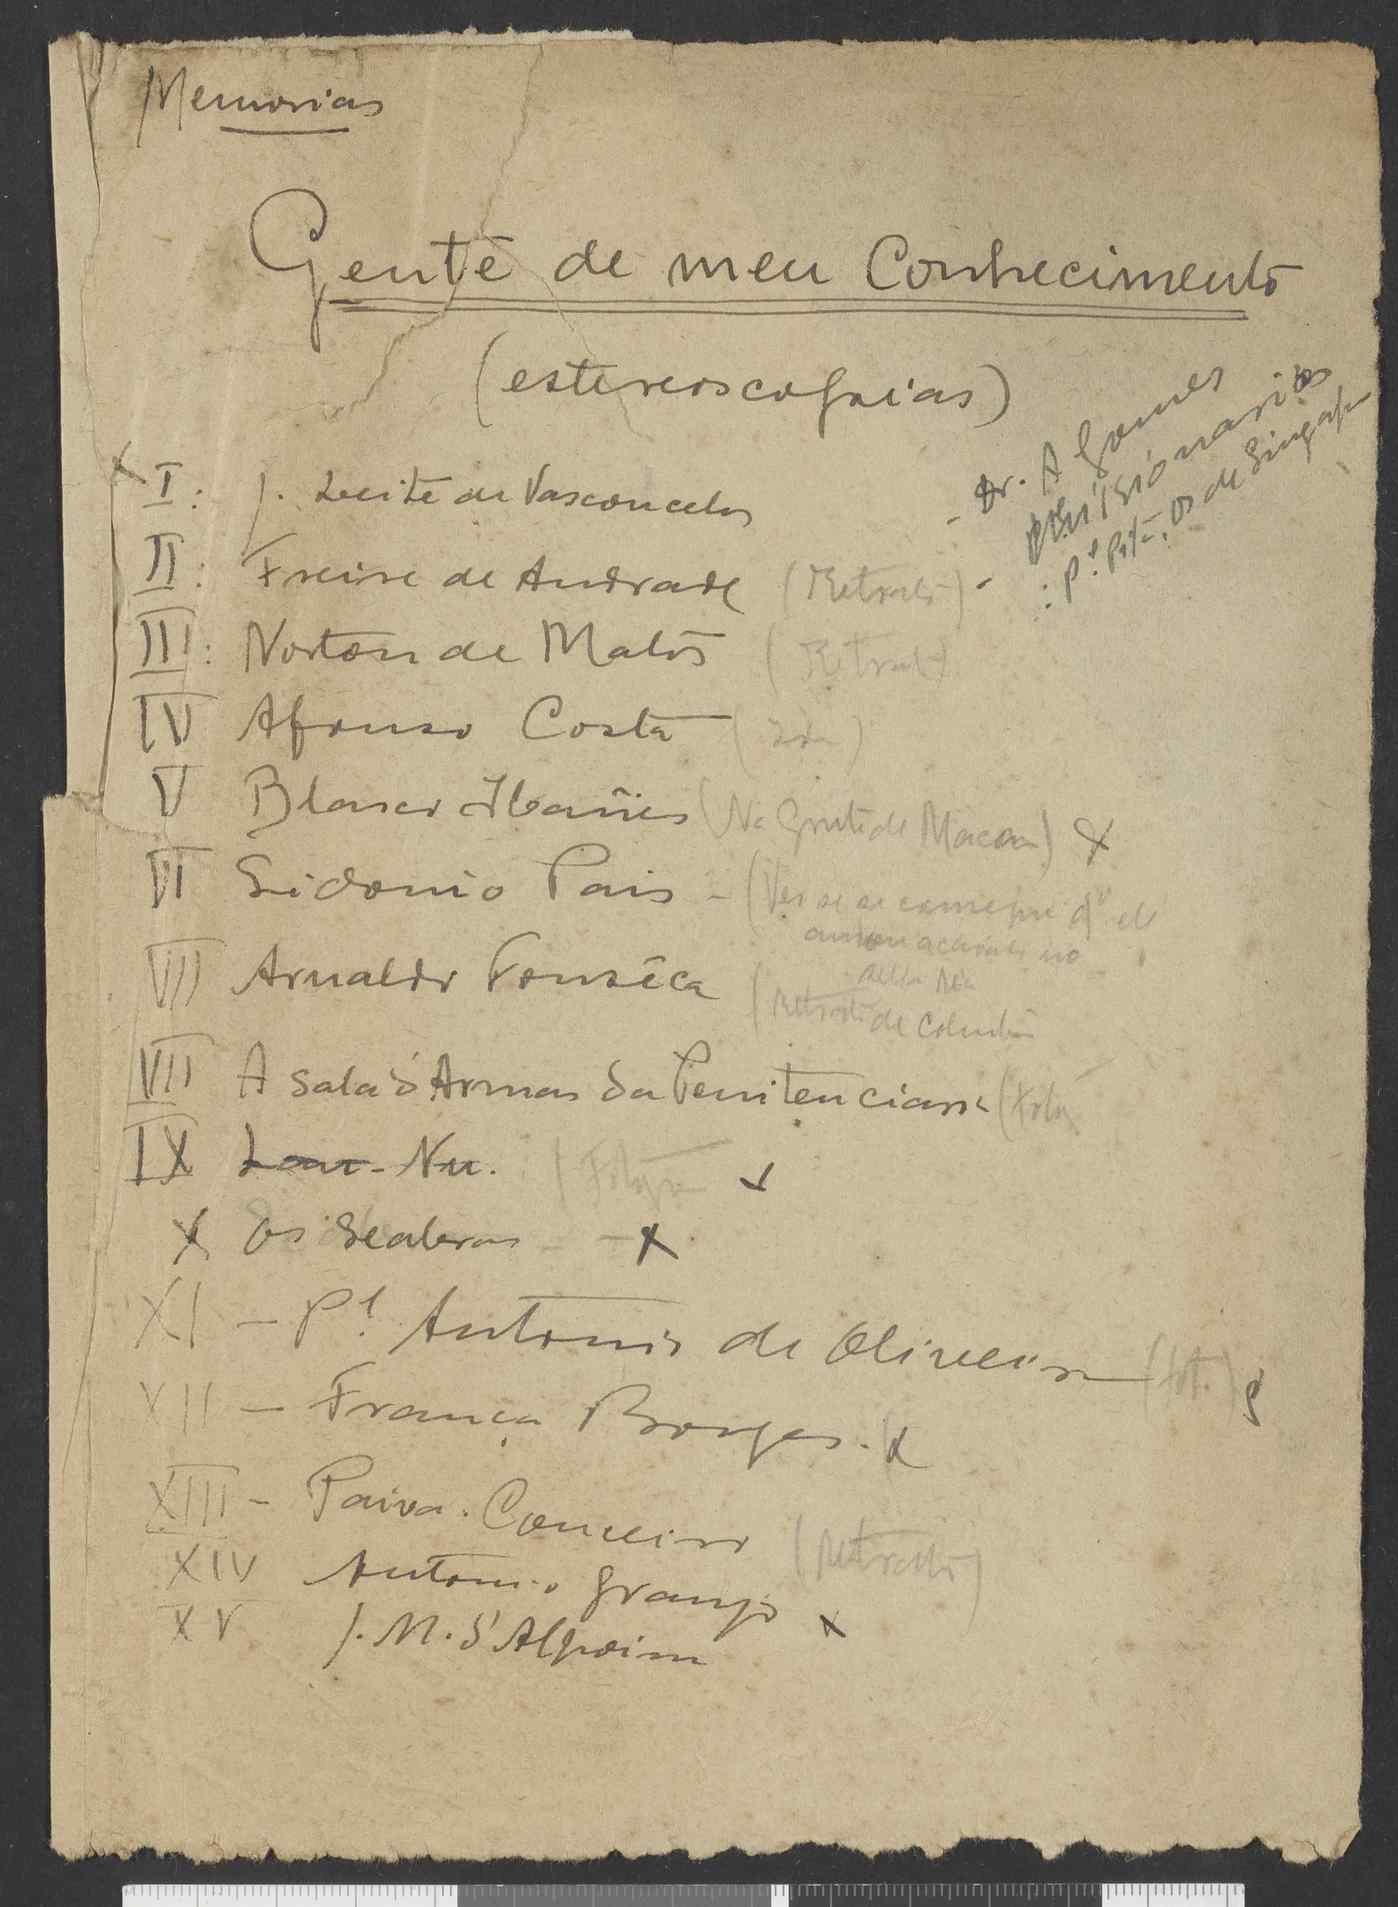 Memorias
Gente de meu Conhecimento
(estereoscopias)
- Dr. A Gomes
- Missionarios
: P.e , os de Singap
x I : J. Leite de Vasconcelos
II : Freire de Andrade (Retrato)
III : Norton de Matos (Retrato)
IV Afonso Costa
V Blasco Ibañes (Na Gruta de Macau) x
VI Sidonio Pais - (Ver se se consegue
VII Arnaldo Fonseca (Retrato de
VIII A sala d'Armas da Penitenciaria (foto
IX Lou-Nu.
X Os Seabras - x
XI - P.e Antonio de Oliveira (fot.)
XII - França Borges. x
XIII - Paiva Couceiro (Retrato)
XIV Antonio Granjo x
XV J. M. d'Alpoim